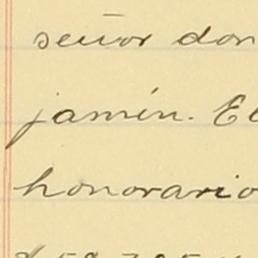 señor don
jamín. El
honorario